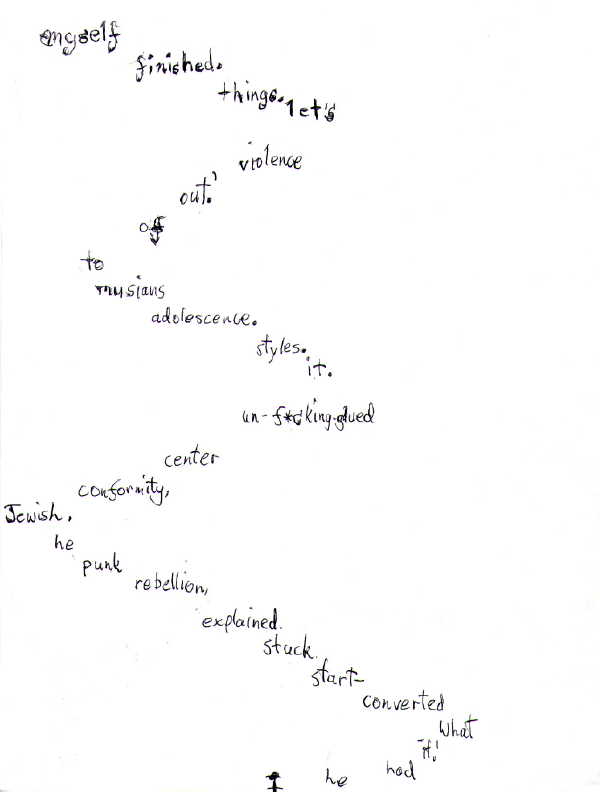 myself
finished.
things. let's
violence
out.'
of
to
musians
adolescence.
styles.
it.
un-f*cking-glued
center
conformity,
Jewish,
he
punk
rebellion,
explained.
stuck.
start-
converted
What
if!
he had